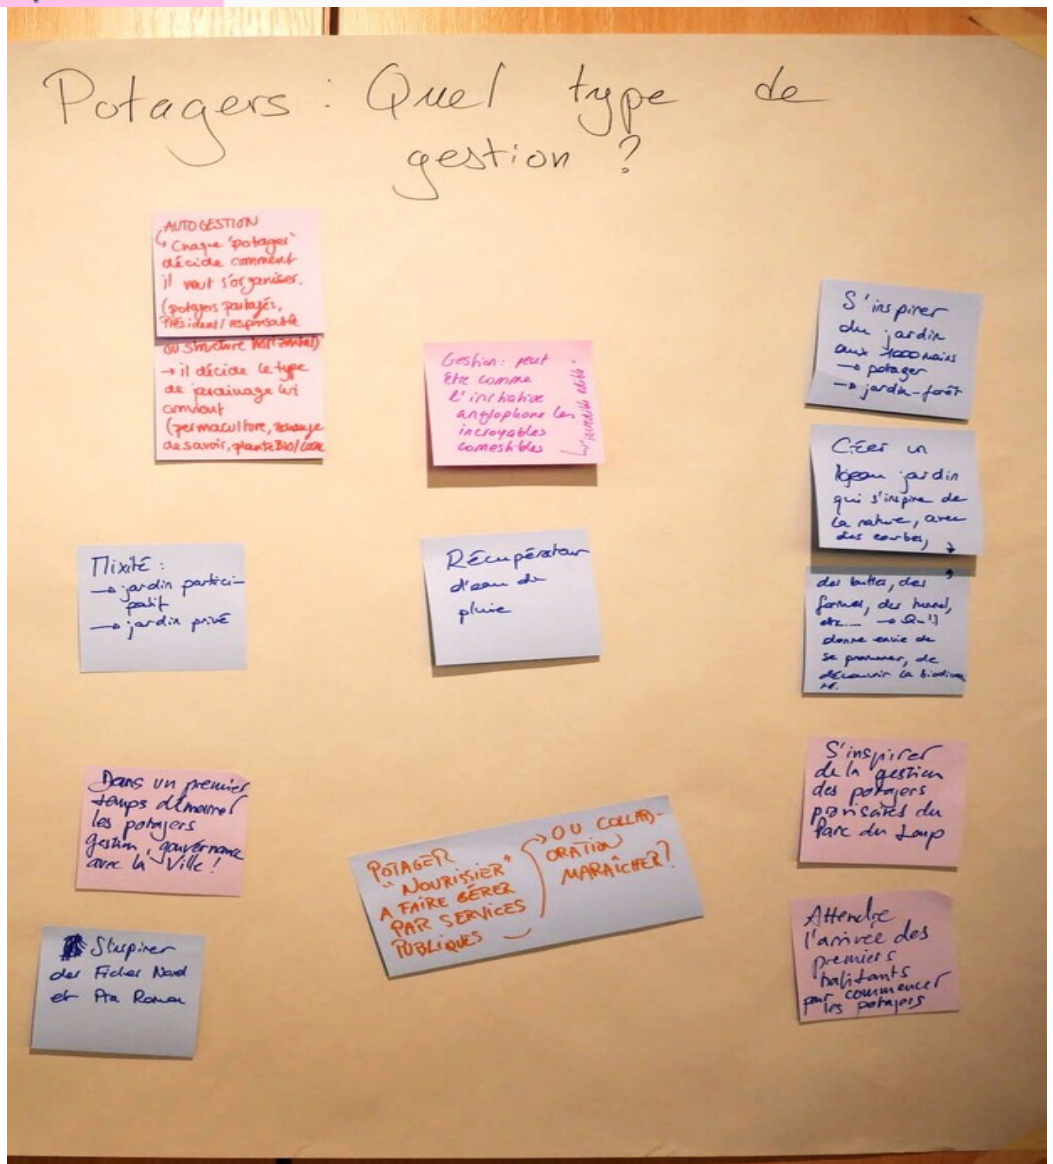 Potagers : Quel type de
gestion ?
AUTOGESTION
↳ Chaque "potager"
décide comment
il veut s'organiser.
(potagers partagés,
Président/responsable
ou structure horizontal)
→ il décide le type
de jardinage lui
convient
(permaculture,
de savoir, plante Bio/
Gestion : peut
être comme
l'initiative
anglophone les
incroyables
comestibles
↳ "incredible edible"
S'inspirer
du jardin
aux 1000 mains
→ potager
→ jardin-forêt
Créer un
jardin
qui s'inspire de
la nature, avec
des courbes,
des buttes, des
formes, des tunnel,
etc... → Qu'il
donne envie de
se promener, de
découvrir la
Mixité :
→ jardin partici-
patif
→ jardin privé
Récupérateur
d'eau de
pluie
Dans un premier
temps démarrer
les potagers
gestion gouvernance
avec la Ville !
S'inspirer
de la gestion
des potagers
provisoires du
Parc du Loup
POTAGER
"NOURISSIER"
A FAIRE GÉRER
PAR SERVICES
PUBLIQUES
→ OU COLLAB-
ORATION
MARAÎCHER ?
S'inspirer
des Fiches Nord
et Pra Roman
Attendre
l'arrivée des
premiers
habitants
pour commencer
les potagers